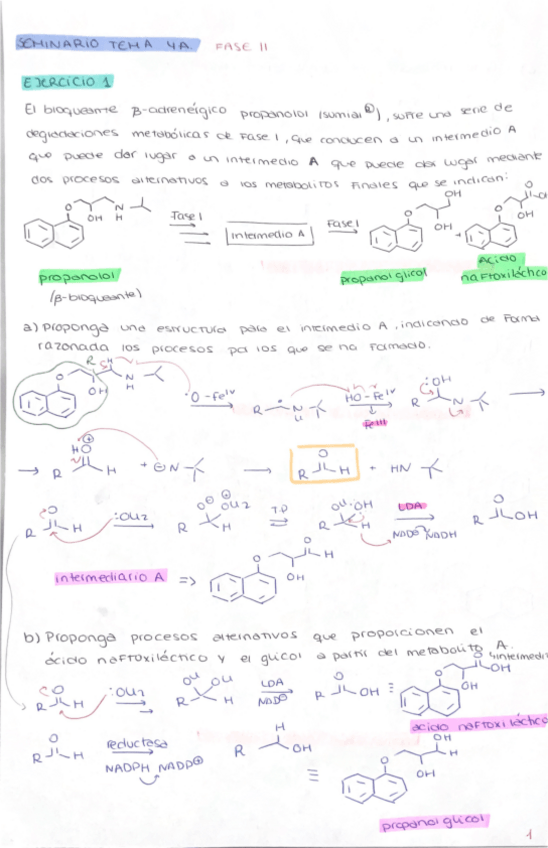 SEMINARIO TEMA 4A. FASE II
EJERCICIO 1
El bloqueante β-adrenérgico propanolol (sumial®), sufre una serie de
degradaciones metabólicas de Fase I, que conducen a un intermedio A
que puede dar lugar a un intermedio A que puede dar lugar mediante
dos procesos alternativos a los metabolitos finales que se indican:
Fase I
Intermedio A
Fase I
propanolol
(β-bloqueante)
propanol glicol
ácido naftoxiláctico
a) Proponga una estructura para el intermedio A, indicando de forma
razonada los procesos por los que se ha formado.
·O-FeIV
HO-FeIV
FeIII
R
OH
N
R H + N
R H + HN
R H :OH2 R H T.P R H LDA R OH
NAD⊕ NADH
intermediario A =>
b) Proponga procesos alternativos que proporcionen el
ácido naftoxiláctico y el glicol a partir del metabolito A.
R H :OH2 R H LDA R OH ≡
NAD⊕
ácido naftoxiláctico
R H reductasa R OH
NADPH NADP⊕
≡
propanol glicol
1